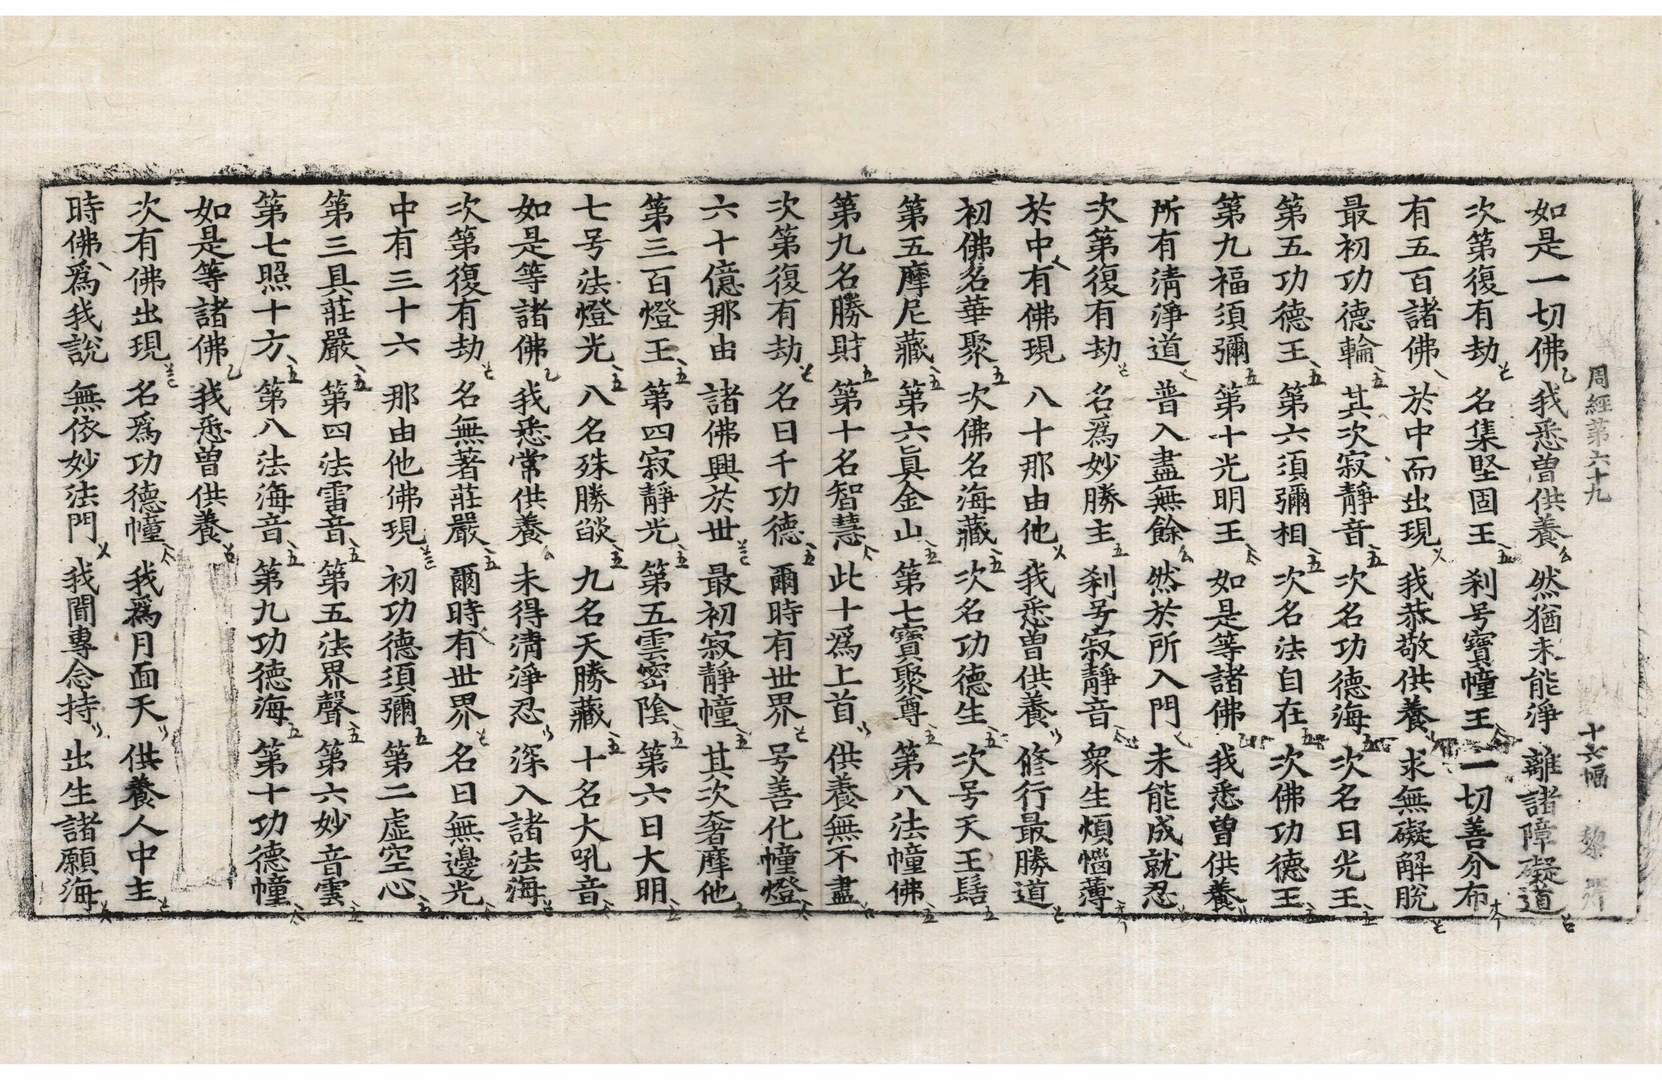 周經第六十九 十六幅 黎
如是一切佛 我悉曾供養 然猶未能淨 離諸障礙道
次第復有劫 名集堅固王 刹号寶幢王 一切善分布
有五百諸佛 於中而出現 我恭敬供養 求無礙解脫
最初功德輪 其次寂靜音 次名功德海 次名日光王
第五功德王 第六須彌相 次名法自在 次佛功德王
第九福須彌 第十光明王 如是等諸佛 我悉曾供養
所有清淨道 普入盡無餘 然於所入門 未能成就忍
次第復有劫 名爲妙勝主 刹号寂靜音 衆生煩惱薄
於中有佛現 八十那由他 我悉曾供養 修行最勝道
初佛名華聚 次佛名海藏 次名功德生 次号天王髻
第五摩尼藏 第六眞金山 第七寶聚尊 第八法幢佛
第九名勝財 第十名智慧 此十爲上首 供養無不盡
次第復有劫 名曰千功德 爾時有世界 号善化幢燈
六十億那由 諸佛興於世 最初寂靜幢 其次奢摩他
第三百燈王 第四寂靜光 第五雲密陰 第六日大明
七号法燈光 八名殊勝燄 九名天勝藏 十名大吼音
如是等諸佛 我悉常供養 未得清淨忍 深入諸法海
次第復有劫 名無著莊嚴 爾時有世界 名曰無邊光
中有三十六 那由他佛現 初功德須彌 第二虛空心
第三具莊嚴 第四法雷音 第五法界聲 第六妙音雲
第七照十方 第八法海音 第九功德海 第十功德幢
如是等諸佛 我悉曾供養
次有佛出現 名爲功德幢 我爲月面天 供養人中主
時佛爲我說 無依妙法門 我聞專念持 出生諸願海